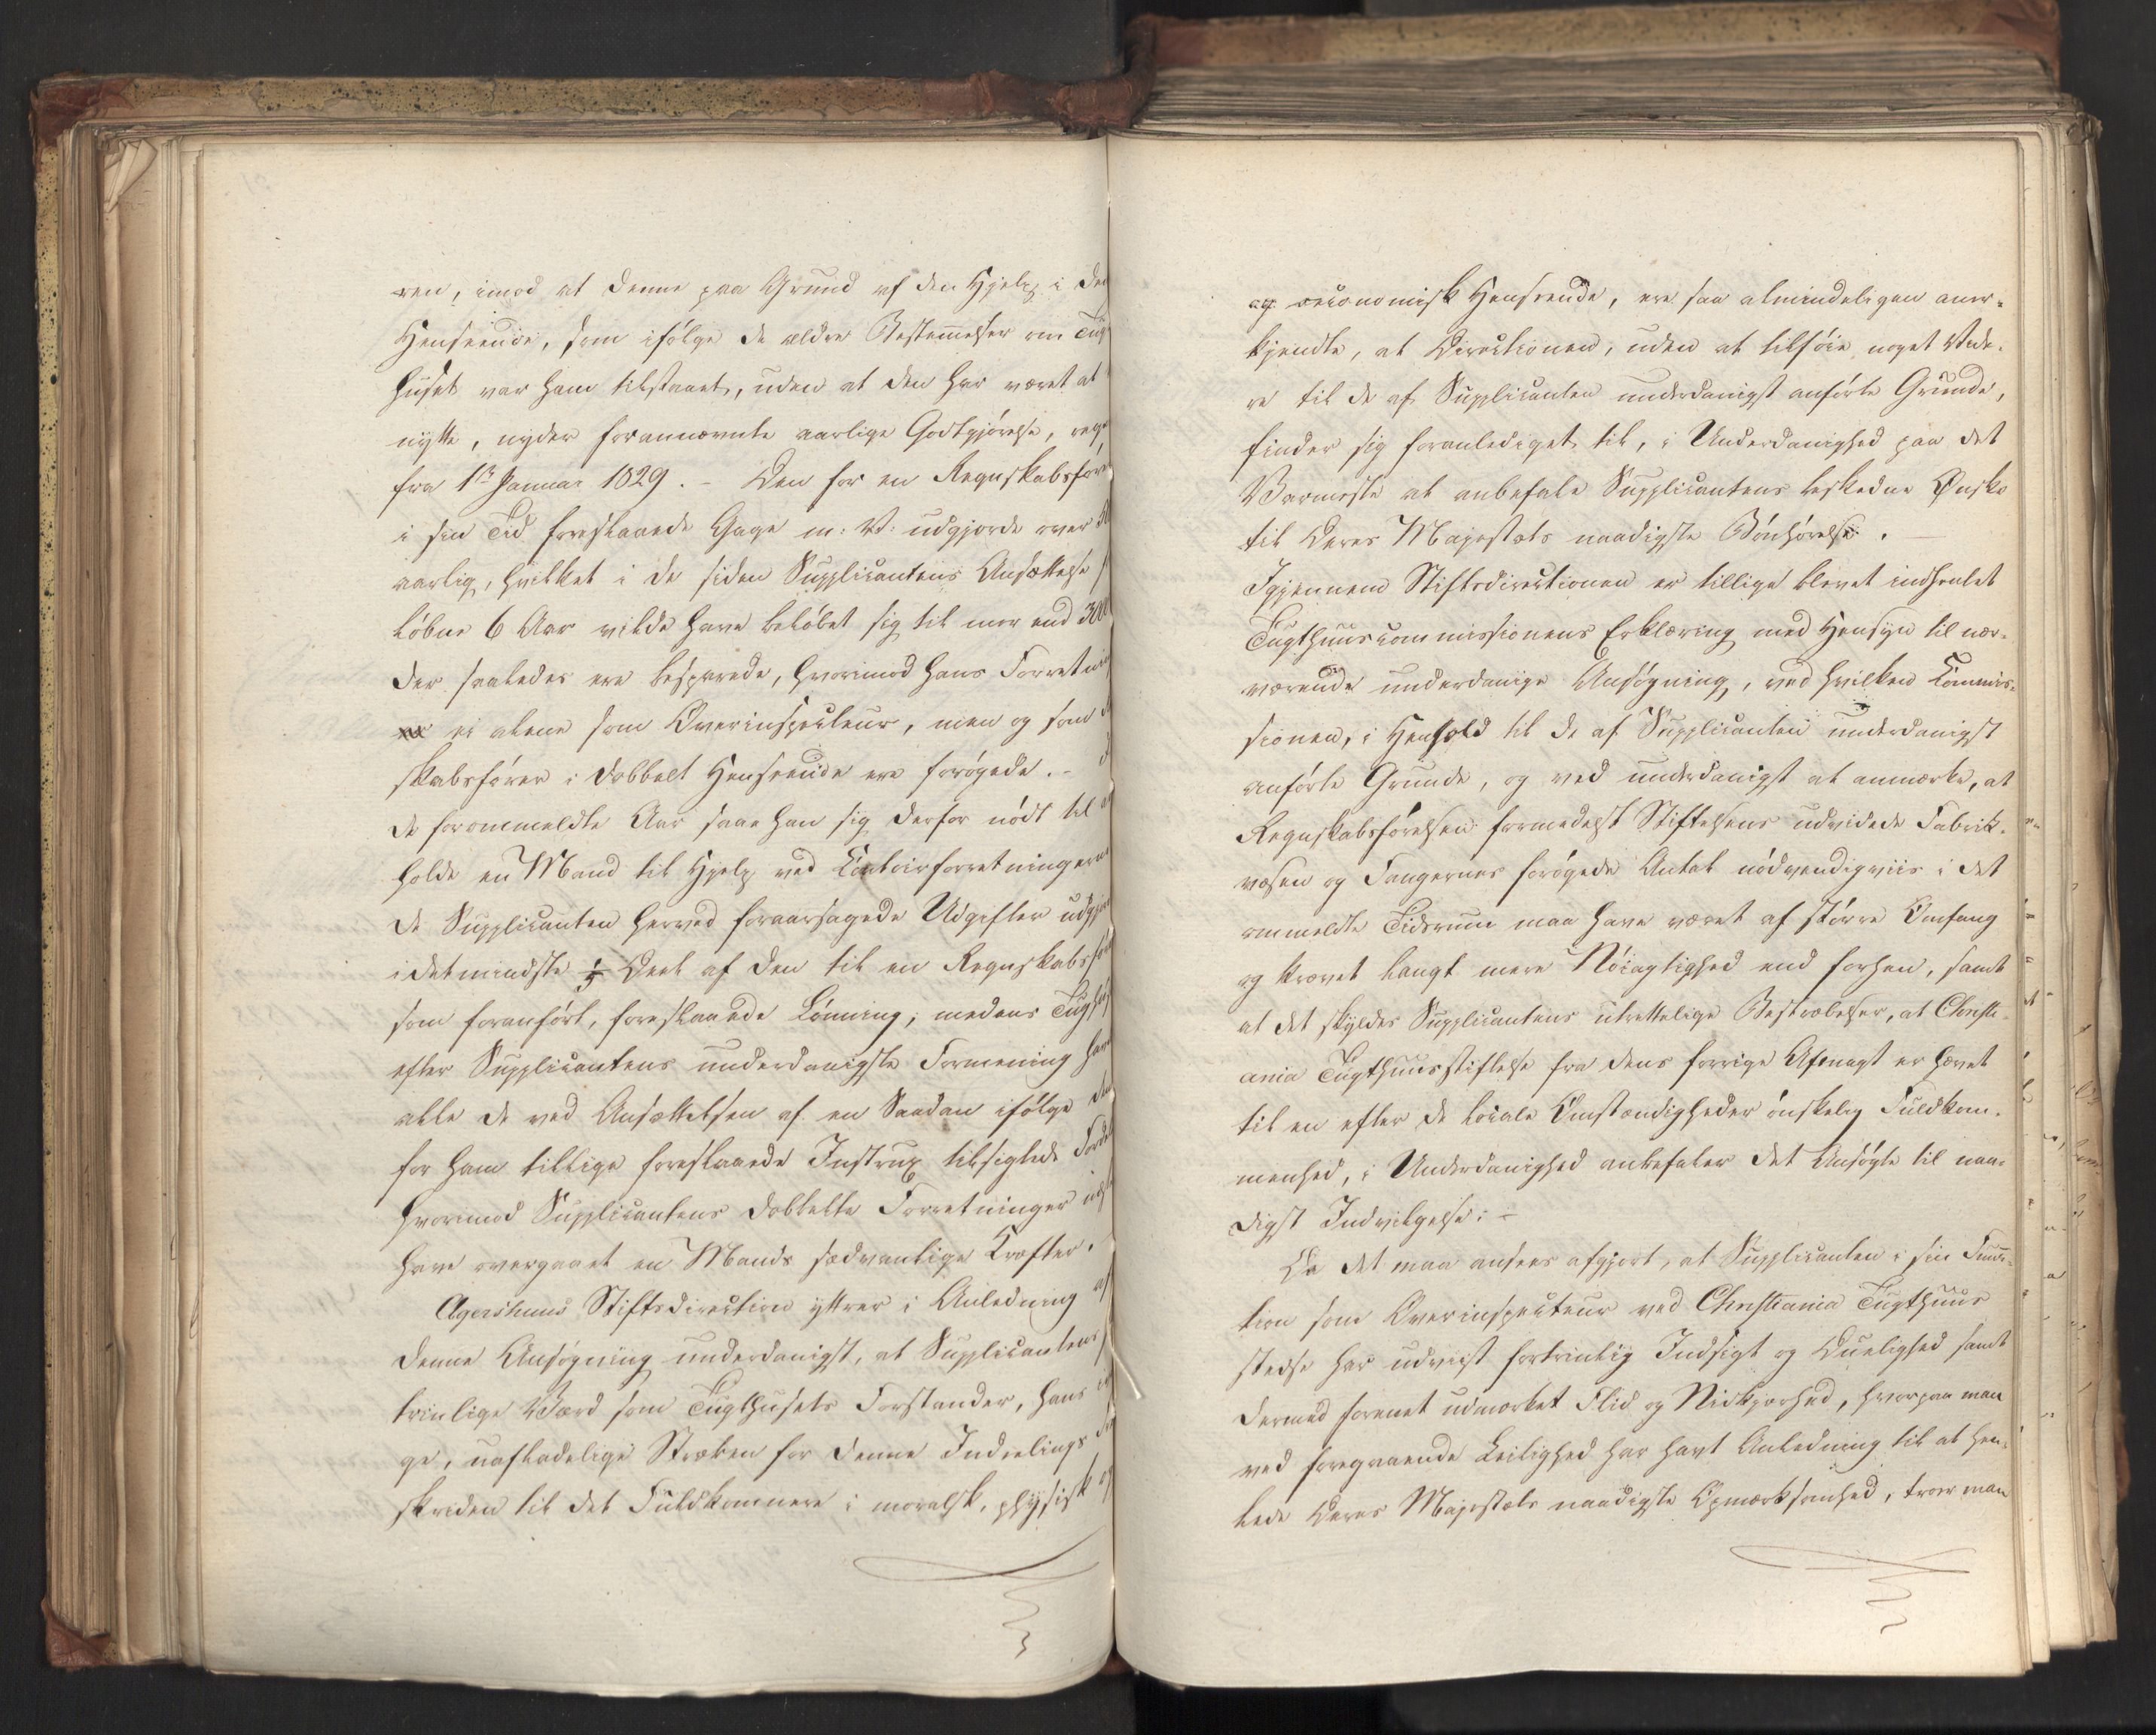 ren, imod at denne paa Grund af den Hjelp i den
Henseende, som ifølge de ældre Bestemmelser om Tugt
huset var ham tilstaaet, uden at den har været at
nytte, nyder forannævnte aarlige Godtgjørelse, regn
fra 1ste Januar 1829. – Den for en Regnskabsfører
i sin Tid foreslaaede Gage m: V: udgjorde over
aarlig, hvilket i de siden Supplicantens Ansættelse
løbne 6 Aar vilde have beløbet sig til mer end 300
der saaledes ere besparede, hvorimod hans Forretnin
ei alene som Overinspecteur, men og som
skabsfører i dobbelt Henseende ere forøgede. –
de forommeldte Aar saae han sig derfor nødt til
holde en Mand til Hjelp ved Contoirforretningerne
de Supplicanten herved foraarsagede Udgifter udgjør
idetmindste Deel af den til en Regnskabsfør
som foranført, foreslaaede Lønning; medens Tugthus
efter Supplicantens underdanigste Formening have
alle de ved Ansættelsen af en Saadan ifølge den
for ham tillige foreslaaede Instrux tilsigtede Fordel
hvorimod Supplicantens dobbelte Forretninger
have overgaaet en Mands sædvanlige Kræfter.
Agershuus Stiftsdirection yttrer i Anledning af
denne Ansøgning underdanigst, at Supplicantens
trinlige Værd som Tugthusets Forstander, hans
ge, uafladelige Stræben for denne Indretnings
skriden til det Fuldkomnere i moralsk, physisk og
og oeconomisk Henseende, ere saa almindeligen aner-
kjendte, at Directionen, uden at tilføie noget Vide-
re til de af Supplicanten underdanigst anførte Grunde,
finder sig foranlediget til, i Underdanighed paa det
Varmeste at anbefale Supplicantens beskedne Ønske
til Deres Majestæts naadigste Bønhørelse.
Igjennem Stiftsdirectionen er tillige blevet indhentet
Tugthuuscommissionens Erklæring med Hensyn til nær-
værende underdanige Ansøgning, ved hvilken Commis-
sionen, i Henhold til de af Supplicanten underdanigst
anførte Grunde, og ved underdanigst at anmærke, at
Regnskabsførelsen formedelst Stiftelsens udvidede Fabrik-
væsen og Fangernes forøgede Antal nødvendigviis i det
ommeldte Tidsrum maa have været af større Omfang
og krævet langt mere Nøiagtighed end forhen, samt
at det skyldes Supplicantens utrættelige Bestræbelser, at Christi-
ania Tugthuusstiftelse fra dens forrige Afmagt er hævet
til en efter de locale Omstændigheder ønskelig Fuldkom-
menhed, i Underdanighed anbefaler det Ansøgte til naa-
digst Indvilgelse: –
Da det maa ansees afgjort, at Supplicanten i sin Func-
tion som Overinspecteur ved Christiania Tugthuus
stedse har udviist fortrinlig Indsigt og Duelighed samt
dermed forenet udmærket Flid og Nidkjærhed, hvorpaa man
ved foregaaende Leilighed har havt Anledning til at hen-
lede Deres Majestæts naadigste Opmærksomhed, troer man